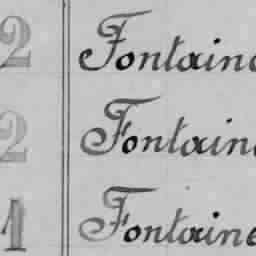 2 Fontaine
2 Fontaine
1 Fontaine